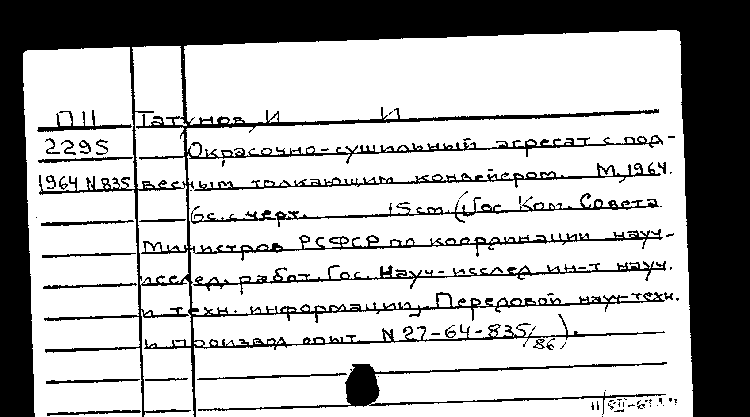 П11 Татунов, И И
2295 Окрасочно-сушильный агрегат с под-
1964 N835 весным толкающим конвейером. М, 1964.
6с. с черт. 15 cm. (Гос Ком. Совета
Министров РСФСР по координации науч-
исслед. работ. Гос. Науч-исслед ин-т науч.
и техн. информации, Передовой науч-техн.
и производ опыт. N 27-64-835/86).